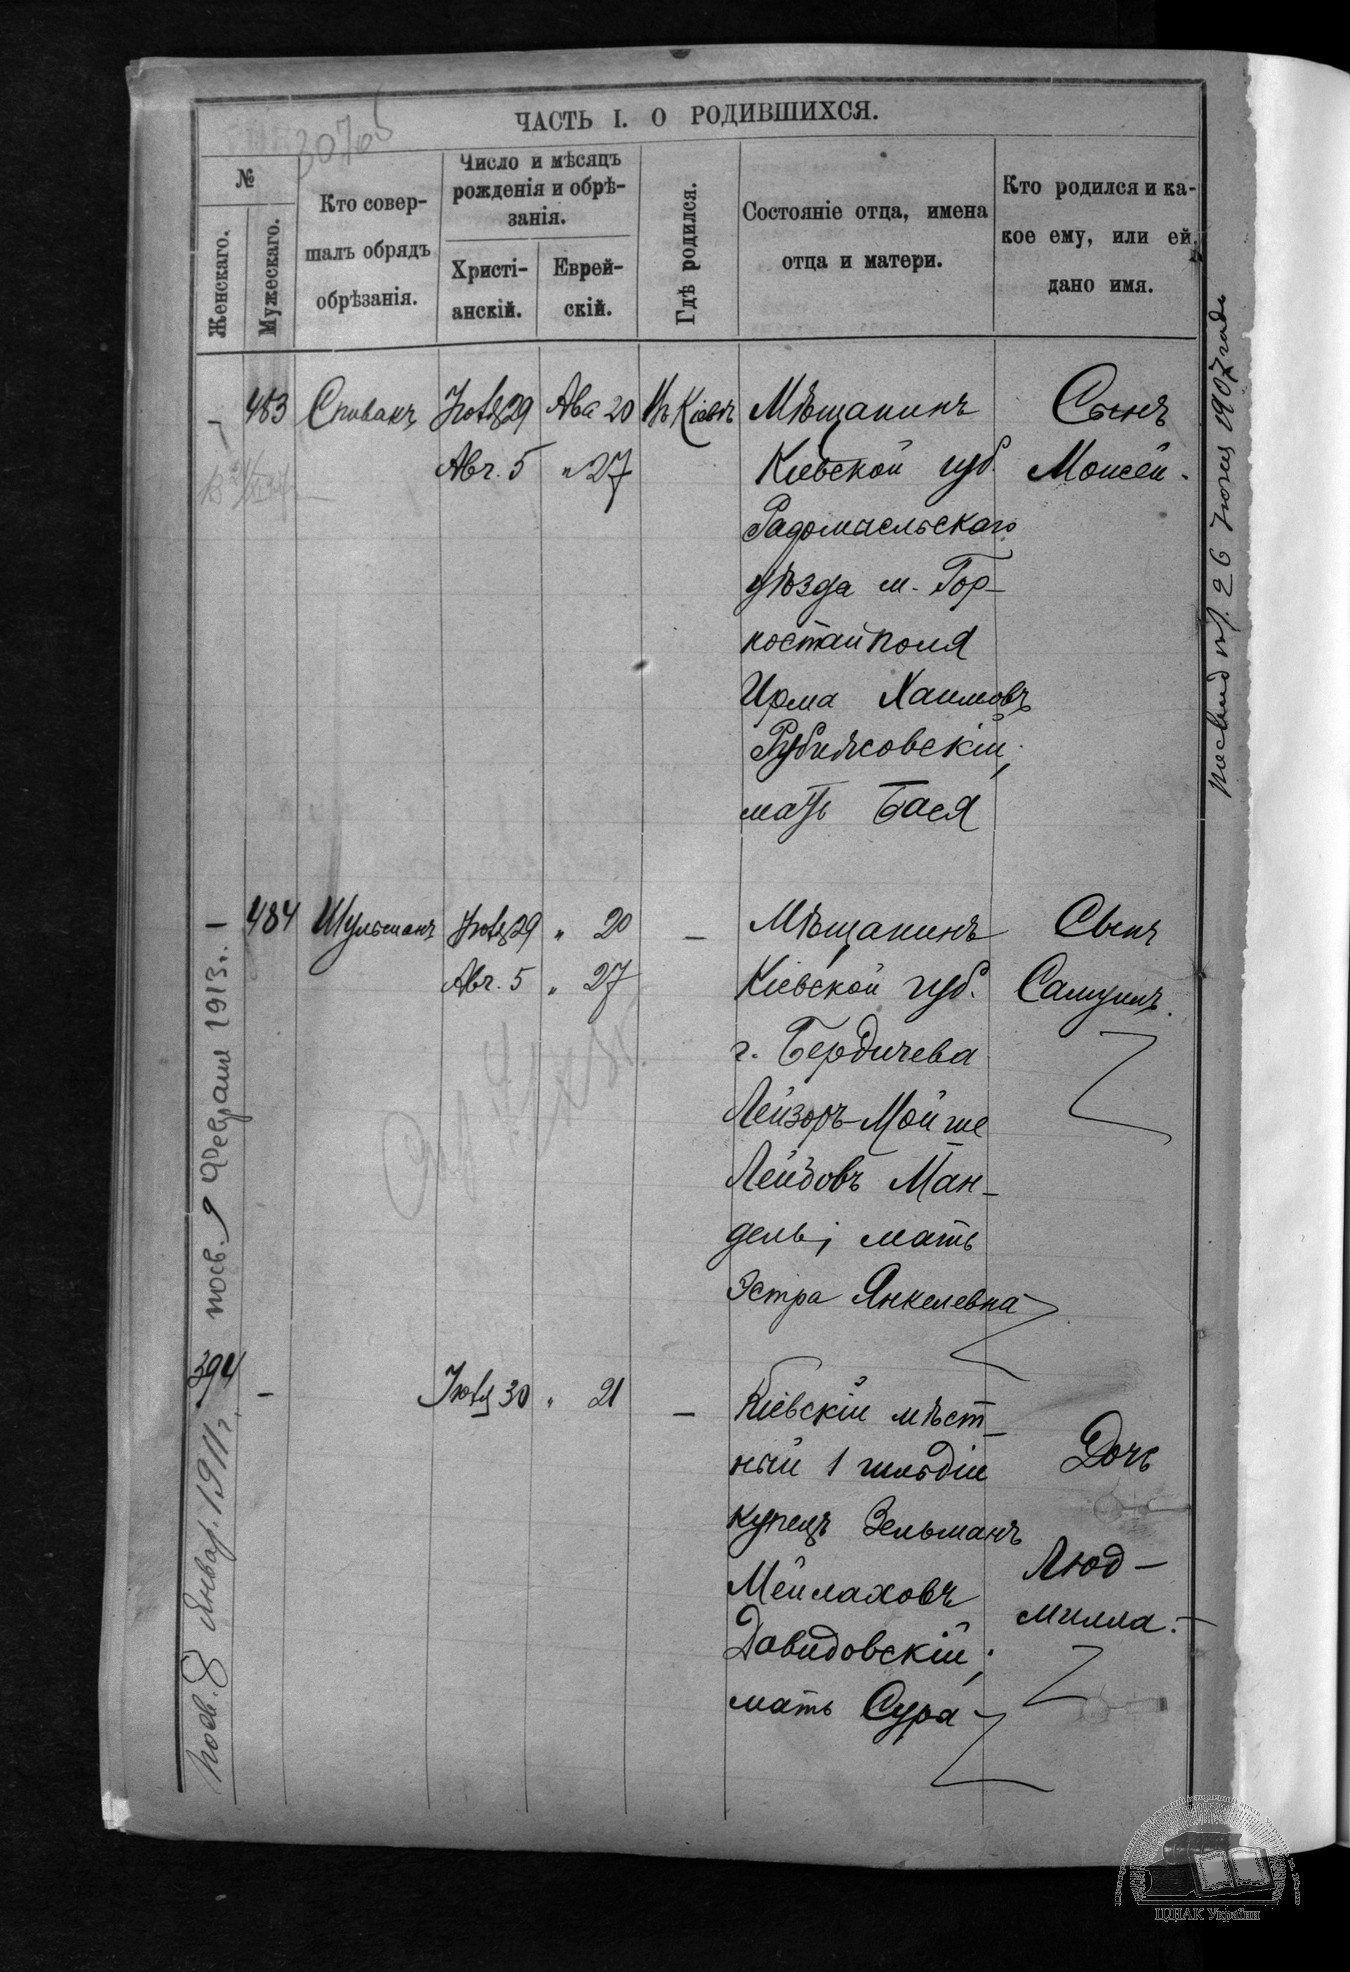 ЧАСТЬ I. О РОДИВШИХСЯ.
№
Женскаго.
Мужескаго.
Кто совер-
шалъ обрядъ
обрѣзанія.
Число и мѣсяцъ
рожденія и обрѣ-
занія.
Христі-
анскій.
Еврей-
скій.
Гдѣ родился.
Состояніе отца, имена
отца и матери.
Кто родился и ка-
кое ему, или ей,
дано имя.
483 Спивакъ Іюля 29 Ава 20 Въ Кіевѣ Мѣщанинъ Сынъ
Авг. 5 „ 27 Кіевской губ. Моисей.
Радомысльскаго
уѣзда м. Гор-
ностайполя
Хаимовъ
мать Бася
– 484 Шульманъ Іюля 29 „ 20 – Мѣщанинъ Сынъ
Авг. 5 „ 27 Кіевской губ. Самуилъ.
г. Бердичева
Лейзоръ-Мойше
Лейбовъ Ман-
дель; мать
Эстра Янкелевна
394 – Іюля 30 „ 21 – Кіевскій мѣст-
ный 1 гильдіи Дочь
купецъ Зельманъ
Мейлаховъ Люд-
Давидовскій; милла.
мать Сура
26 Іюня 1907 года
посв. 9 Февраля 1913 г.
посв. 8 Январ. 1911 г.
ЦДІАК України